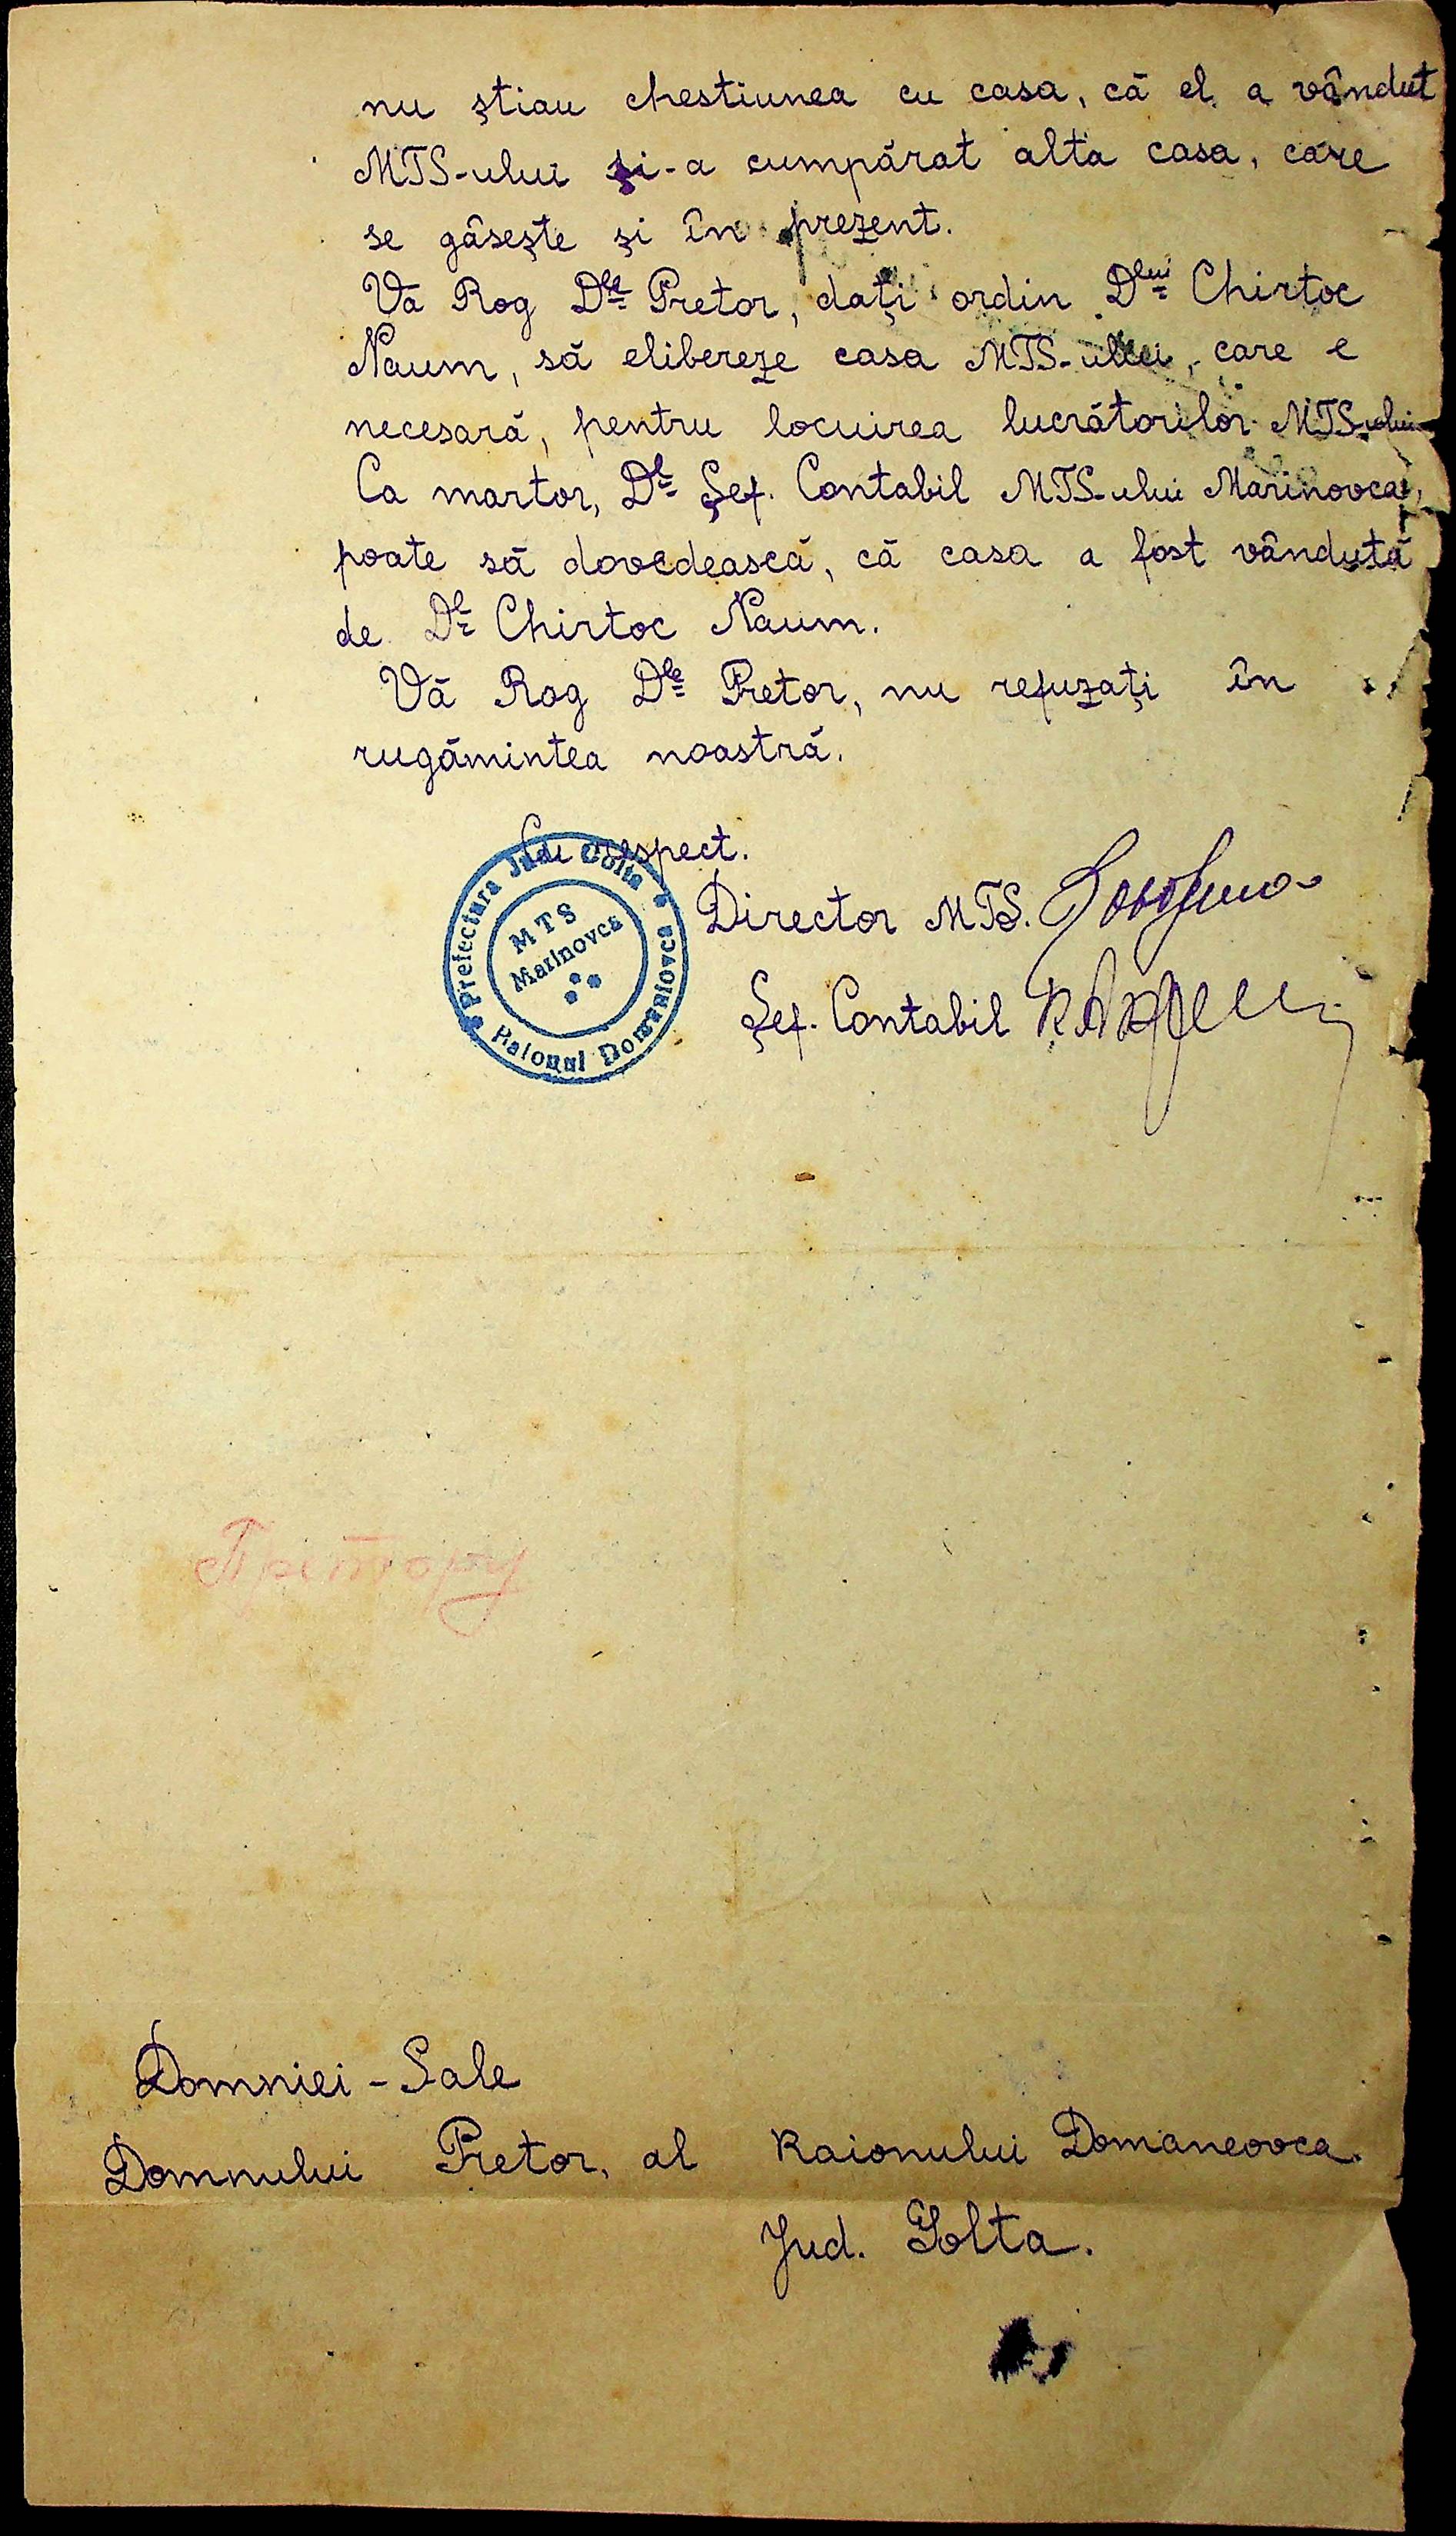 nu știau chestiunea cu casa, că el a vândut
MTS-ului și-a cumpărat alta casa, care
se găsește și în prezent.
Vă Rog Dle Pretor, dați ordin Dlui Chirtoc
Naum, să elibereze casa MTS-ului, care e
necesară, pentru locuirea lucrătorilor MTS-ului
Ca martor, Dl Șef. Contabil MTS-ului Marinovca,
poate să dovedească, că casa a fost vândută
de Dl Chirtoc Naum.
Vă Rog Dle Pretor, nu refuzați în
rugămintea noastră.
Cu respect.
Director MTS.
Șef. Contabil
Prefectura Jud. Golta
MTS
Marinovca
Raionul Domaniovca
Претору
Domniei-Sale
Domnului Pretor, al Raionului Domaneovca.
Jud. Golta.